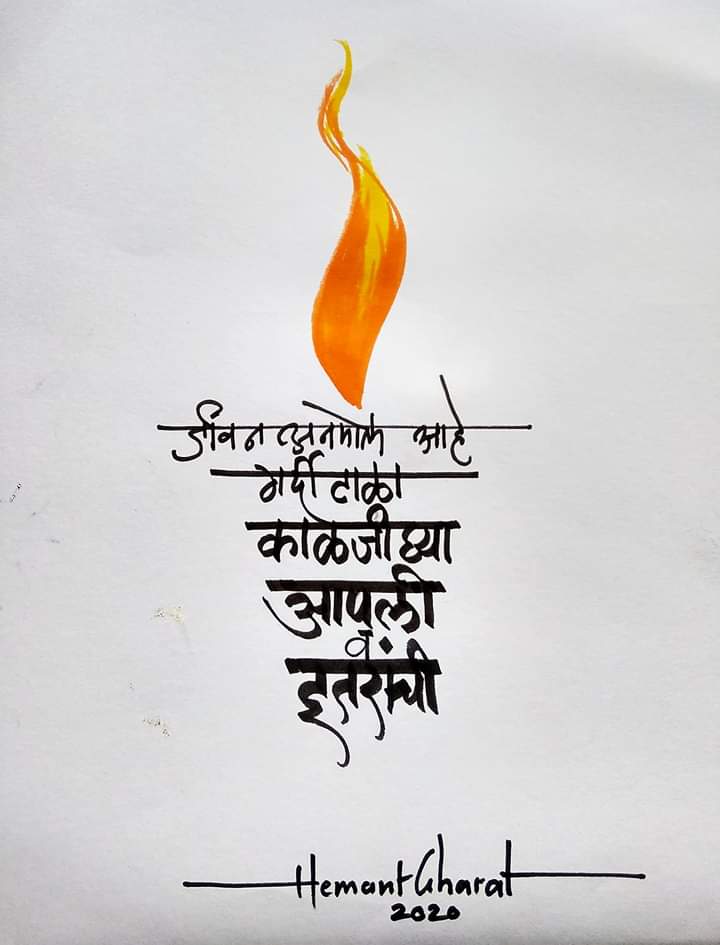 जीवन अनमोल आहे
गर्दी टाळा
काळजी घ्या
आपली
व
इतरांची
Hemant Gharat
2020